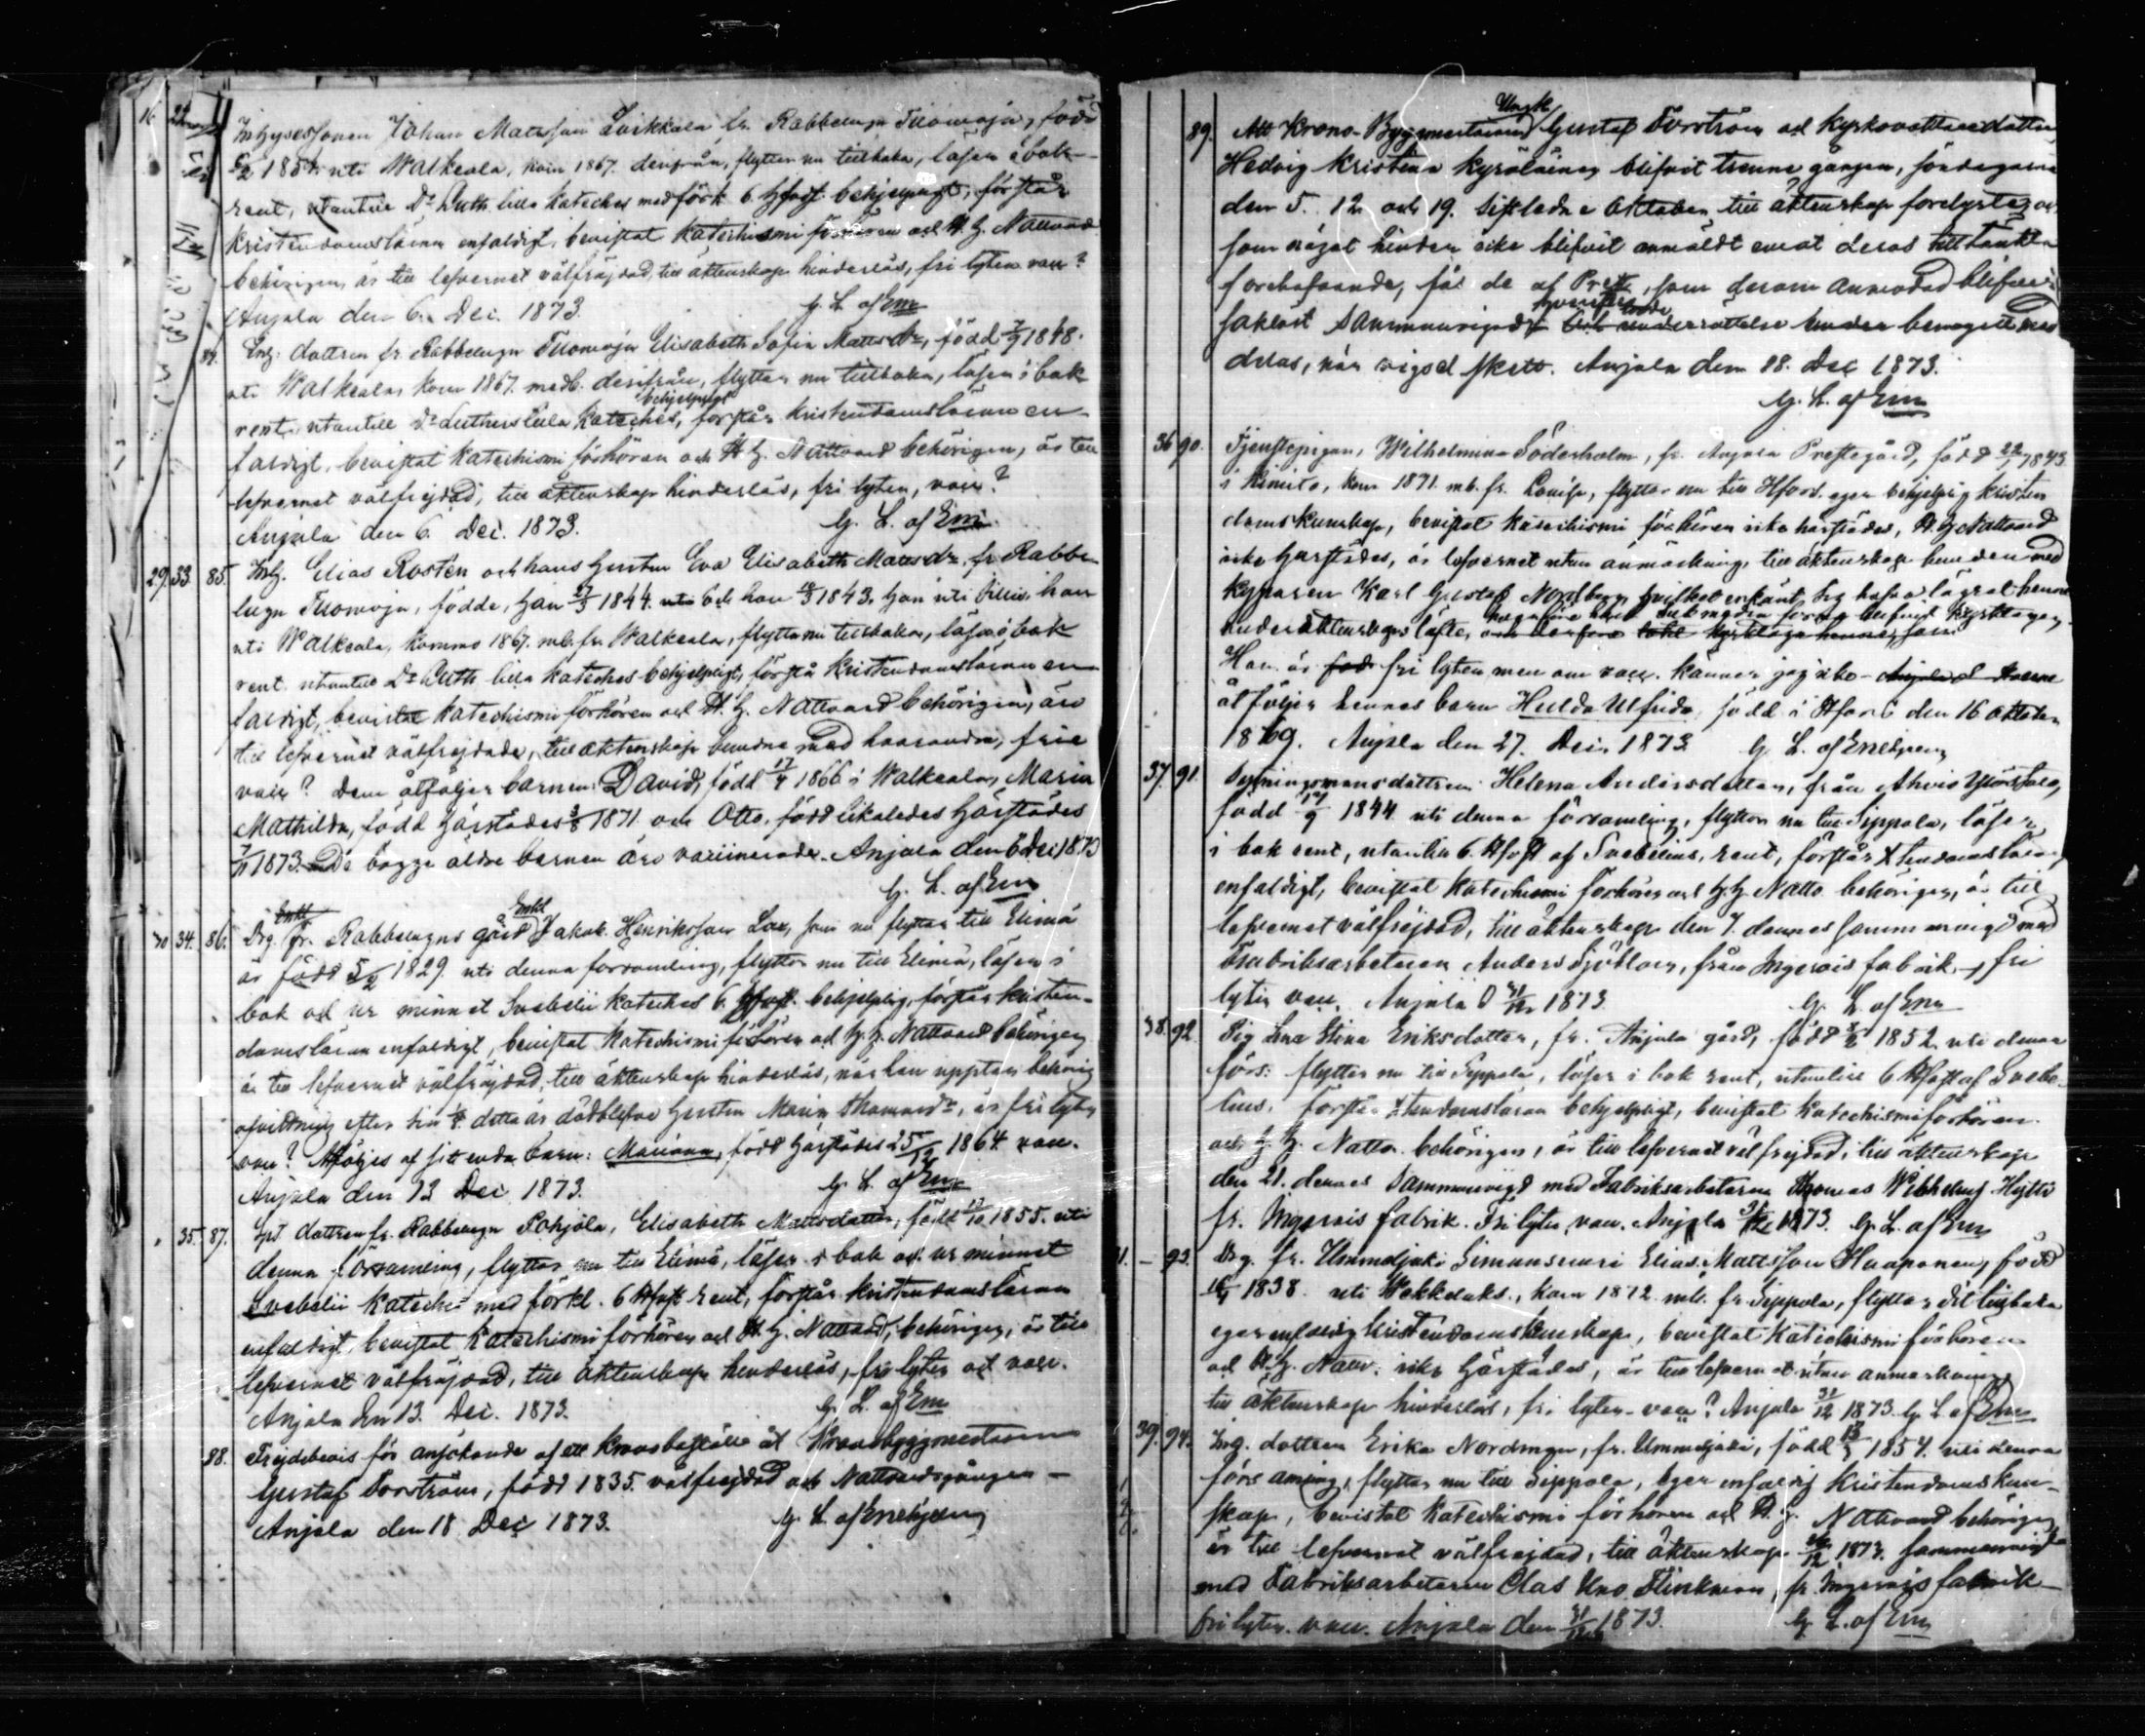 Inhysessonen Johan Matsson Luikkala fr. Rabbelugn Tuomoja, född
1854 uti Walkeala, kom 1867 derifrån, flyttar nu tillbaka, läser i bok
rent, utantill Dr Luth. lilla kateches med förk. 6 Hfst. behjelpligt, förstår
kristendomsläran enfaldigt, bevistat katechismi förhören och H. H. Nattvard
behörigen, är till lefvernet välfrejdad, till äktenskap hinderlös, fri lyten vacc?
Anjala den 6. Dec. 1873. G. L. af Em
84. Inh. dottren fr. Rabbelugn Tuomoja Elisabeth Sofia Mattsdr, född 1848.
uti Walkeala, kom 1867. med b. derifrån, flyttar nu tillbaka, läser i bok
behjelpligt
rent, utantill Dr Luthers lilla kateches, förstår kristendomsläran en-
faldigt, bevistat katechismi förhören och H. H. Nattvard behörigen, är till
lefvernet välfrejdad, till äktenskap hinderlös, fri lyten, vacc?
Anjala den 6. Dec. 1873. G. L. af Em.
29. 33. 85. Inh. Elias Rosten och hans hustru Eva Elisabeth Mattsdr fr. Rabbe-
lugn Tuomoja, födde, han 1844. och hon 1843, han uti hon
uti Walkeala, kommo 1867. mb. fr. Walkeala, flytta nu tillbaka, läsa i bok
rent. utantill Dr Luth. lilla kateches behjelpligt, förstå kristendomsläran en-
faldigt, bevistat katechismi förhören och H. H. Nattvard behörigen, äro
till lefvernet välfrejdade, till äktenskap bundna med hvarandra, frie
vacc? Dem åtföljer barnen: David, född 17/4 1866 i Walkeala, Maria
Mathilda, född härstädes 1871 och Otto, född likaledes härstädes
1873. De begge äldre barnen äro vaccinerade. Anjala den 6 Dec 1873
G. L. af Em
Enkl
30 34. 86. Drg. fr. Rabbelugns gård Jakob Henriksson Lax, som nu flyttar till Elimä
är född 5/2 1829. uti denna församling, flyttar nu till Elimä, läser i
bok och ur minnet Svebelii kateches 6. Hfst. behjelplig, förstår kristen-
domsläran enfaldigt, bevistat katechismi förhören och H. H. Nattvard behörigen
är till lefvernet välfrejdad, till äktenskap hinderlös, när han uppvisar behörig
afvittring efter sin detta år dödblefne hustru Maria Thomasdr, är fri lyten
vacc? Åtföljes af sitt enda barn: Marianna, född härstädes 25/12 1864 vacc.
Anjala den 13 Dec. 1873. G. L. af Em
35. 87. dottren fr. Rabbelugn Pohjola, Elisabeth Mattsdotter, född 1855. uti
denna församling, flyttar nu till Elimä, läser i bok och ur minnet
Svebelii kateches med förkl. 6 Hfst rent, förstår kristendomsläran
enfaldigt, bevistat katechismi förhören och H. H. Nattvard, behörigen, är till
lefvernet välfrejdad, till äktenskap hinderlös, fri lyten och vacc.
Anjala den 13. Dec. 1873. G. L. af Em
88. Frejdebevis för ansökande af ett kronobeställe åt Kronobyggmästaren
Gustaf Forström, född 1835. välfrejdad och Nattvardsgången —
Anjala den 18 Dec 1873. G. L. af Enehjelm
Ungk
89. Att Krono-Byggmästaren Gustaf Forström och Kyrkovaktaredottren
Hedvig Kristina Kyröläinen blifvit trenne gånger, söndagarna
den 5. 12 och 19. sistledne Oktober till äktenskap forelystes och
som något hinder icke blifvit anmäldt emot deras tilltänkta
forehafvande, får de af Prest, som derom anmodad blifver
saklöst sammanvigde underrättelse bemagell
deras, när vigsel skett. Anjala den 18. Dec 1873.
G. L. af Em
36 90. Tjenstepigan, Wilhelmina Söderholm, fr. Anjala Prestegård, född 1843
i Kimito, kom 1871. mb. fr. Lovisa, flyttar nu till Hfors. eger behjelplig kristen
domskunskap, bevistat katechismi förhören icke härstädes, H. H. Nattvard
icke härstädes, är lefvernet utan anmärkning, till äktenskap bunden med
Kyparen Karl Gustaf Nordberg hvilket erkänt sig hafva lägrat henne
under äktenskaps löfte,
Hon är fri lyten men om vacc. känner jag icke –
åtföljer hennes barn Hulda Ulfrida, född i Hfors den 16 Oktober
1869. Anjala den 27. Dec. 1873 G. L. af Enehjelm
37. 91. dottren Helena Andersdotter, från Ahvio
född 1844. uti denna församling, flyttar nu till Sippola, läser
i bok rent, utantill 6. Hfst af Svebelius, rent, förstår Xtendomsläran
enfaldigt, bevistat katechismi förhören och H. H. Nattv. behörigen, är till
lefvernet välfrejdad, till äktenskap den 7. dennes sammanvigd med
Fabriksarbetaren Anders Sjöblom, från Ingerois fabrik, fri
lyten vacc. Anjala d 31/12 1873 G. L. af Em
38. 92. Pig. Lena Stina Eriksdotter, fr. Anjala gård, född 1852 uti denna
förs: flyttar nu till Sippola, läser i bok rent, utantill 6 Hfst af Svebe-
lius, förstår Xtendomsläran behjelpligt, bevistat katechismi förhören
och H. H. Nattv. behörigen, är till lefvernet välfrejdad, till äktenskap
den 21. dennes sammanvigd med Fabriksarbetaren Thomas Wilhelms Hytti
fr. Ingerois fabrik. Fri lyten vacc. Anjala 31/12 1873. G. L. af Em
— 93. Drg. fr. Ummeljoki Simunsuuri Elias Mattsson Haaponen, född
1838. uti Wekkelaks., kom 1872. mb. fr. Sippola, flyttar dit tillbaka
eger enfaldig Kristendomskunskap, bevistat Katechismi förhören
och H. H. Nattv. icke härstädes, är till lefvernet utan anmärkning
till äktenskap hinderlös, fri lyten – vacc? Anjala 31/12 1873. G. L. af Em
39. 94. Inh. dottren Erika Nordman, fr. Ummeljoki, född 1854. uti denna
församling, flyttar nu till Sippola, eger enfaldig Kristendomskun-
skap, bevistat Katechismi förhören och H. H. Nattvard behörigen
är till lefvernet välfrejdad, till äktenskap 1873. sammanvigd
med Fabriksarbetaren Clas Uno Flinkman, fr. Ingerois fabrik
fri lyten. vacc. Anjala den 31/12 1873. G. L. af Em